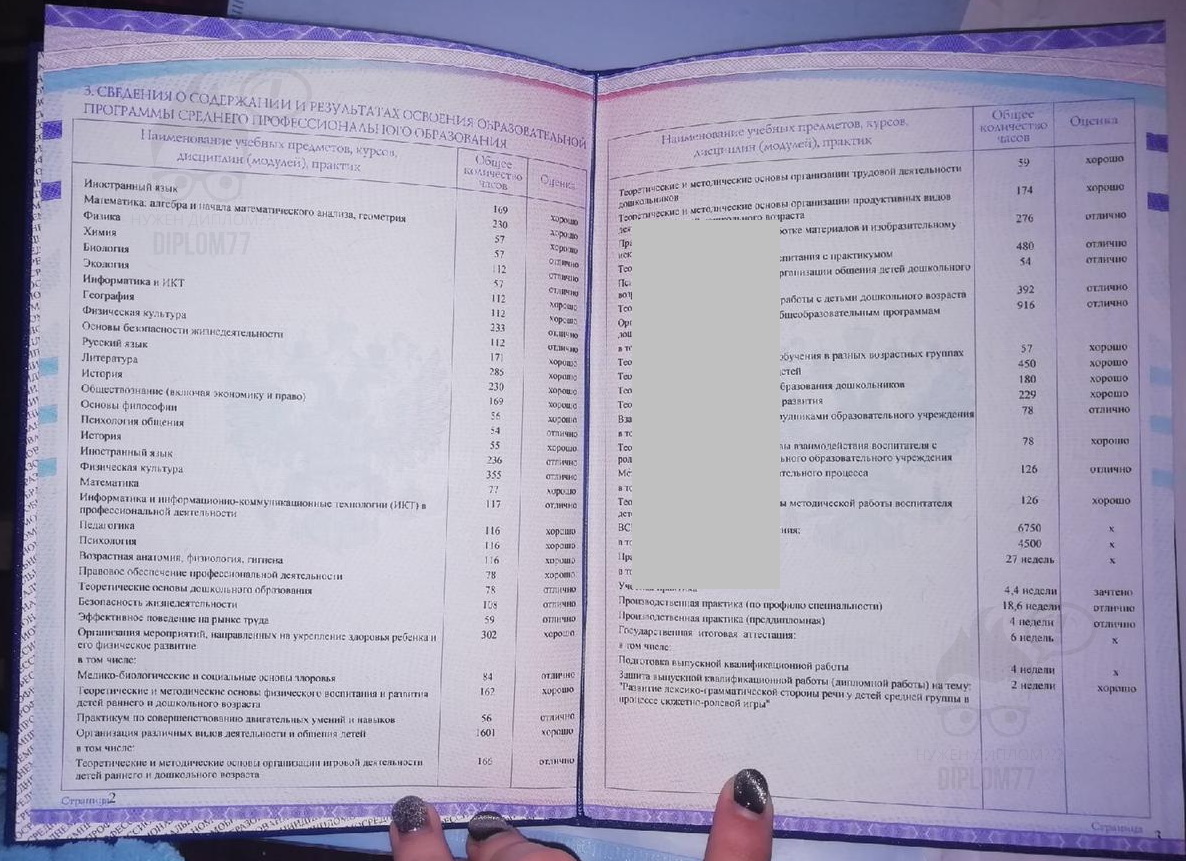 3. СВЕДЕНИЯ О СОДЕРЖАНИИ И РЕЗУЛЬТАТАХ ОСВОЕНИЯ ОБРАЗОВАТЕЛЬНОЙ
ПРОГРАММЫ СРЕДНЕГО ПРОФЕССИОНАЛЬНОГО ОБРАЗОВАНИЯ
Наименование учебных предметов, курсов, дисциплин (модулей), практик Общее количество часов Оценка
Иностранный язык 169 хорошо
Математика: алгебра и начала математического анализа, геометрия 230 хорошо
Физика 57 хорошо
Химия 57 отлично
Биология 112 отлично
Экология 57 отлично
Информатика и ИКТ 112 хорошо
География 112 хорошо
Физическая культура 233 отлично
Основы безопасности жизнедеятельности 112 отлично
Русский язык 171 хорошо
Литература 285 хорошо
История 230 хорошо
Обществознание (включая экономику и право) 169 хорошо
Основы философии 56 хорошо
Психология общения 54 отлично
История 55 хорошо
Иностранный язык 236 отлично
Физическая культура 355 отлично
Математика 77 хорошо
Информатика и информационно-коммуникационные технологии (ИКТ) в 117 отлично
профессиональной деятельности
Педагогика 116 хорошо
Психология 116 хорошо
Возрастная анатомия, физиология, гигиена 116 хорошо
Правовое обеспечение профессиональной деятельности 78 хорошо
Теоретические основы дошкольного образования 78 отлично
Безопасность жизнедеятельности 108 отлично
Эффективное поведение на рынке труда 59 отлично
Организация мероприятий, направленных на укрепление здоровья ребенка и 302 хорошо
его физическое развитие
в том числе:
Медико-биологические и социальные основы здоровья 84 отлично
Теоретические и методические основы физического воспитания и развития 162 хорошо
детей раннего и дошкольного возраста
Практикум по совершенствованию двигательных умений и навыков 56 отлично
Организация различных видов деятельности и общения детей 1601 хорошо
в том числе:
Теоретические и методические основы организации игровой деятельности 166 отлично
детей раннего и дошкольного возраста
Страница 2
Наименование учебных предметов, курсов, дисциплин (модулей), практик Общее количество часов Оценка
Теоретические и методические основы организации трудовой деятельности 59 хорошо
дошкольников
Теоретические и методические основы организации продуктивных видов 174 хорошо
возраста
материалов и изобразительному 276 отлично
с практикумом 480 отлично
общения детей дошкольного 54 отлично
работы с детьми дошкольного возраста 392 отлично
программам 916 отлично
обучения в разных возрастных группах 57 хорошо
450 хорошо
дошкольников 180 хорошо
развития 229 хорошо
образовательного учреждения 78 отлично
взаимодействия воспитателя с 78 хорошо
образовательного учреждения
процесса 126 отлично
методической работы воспитателя 126 хорошо
6750 х
4500 х
27 недель х
4,4 недели зачтено
Производственная практика (по профилю специальности) 18,6 недели отлично
Производственная практика (преддипломная) 4 недели отлично
Государственная итоговая аттестация: 6 недель х
в том числе:
Подготовка выпускной квалификационной работы 4 недели х
Защита выпускной квалификационной работы (дипломной работы) на тему: 2 недели хорошо
"Развитие лексико-грамматической стороны речи у детей средней группы в
процессе сюжетно-ролевой игры"
Страница 3
DIPLOM77
DIPLOM77